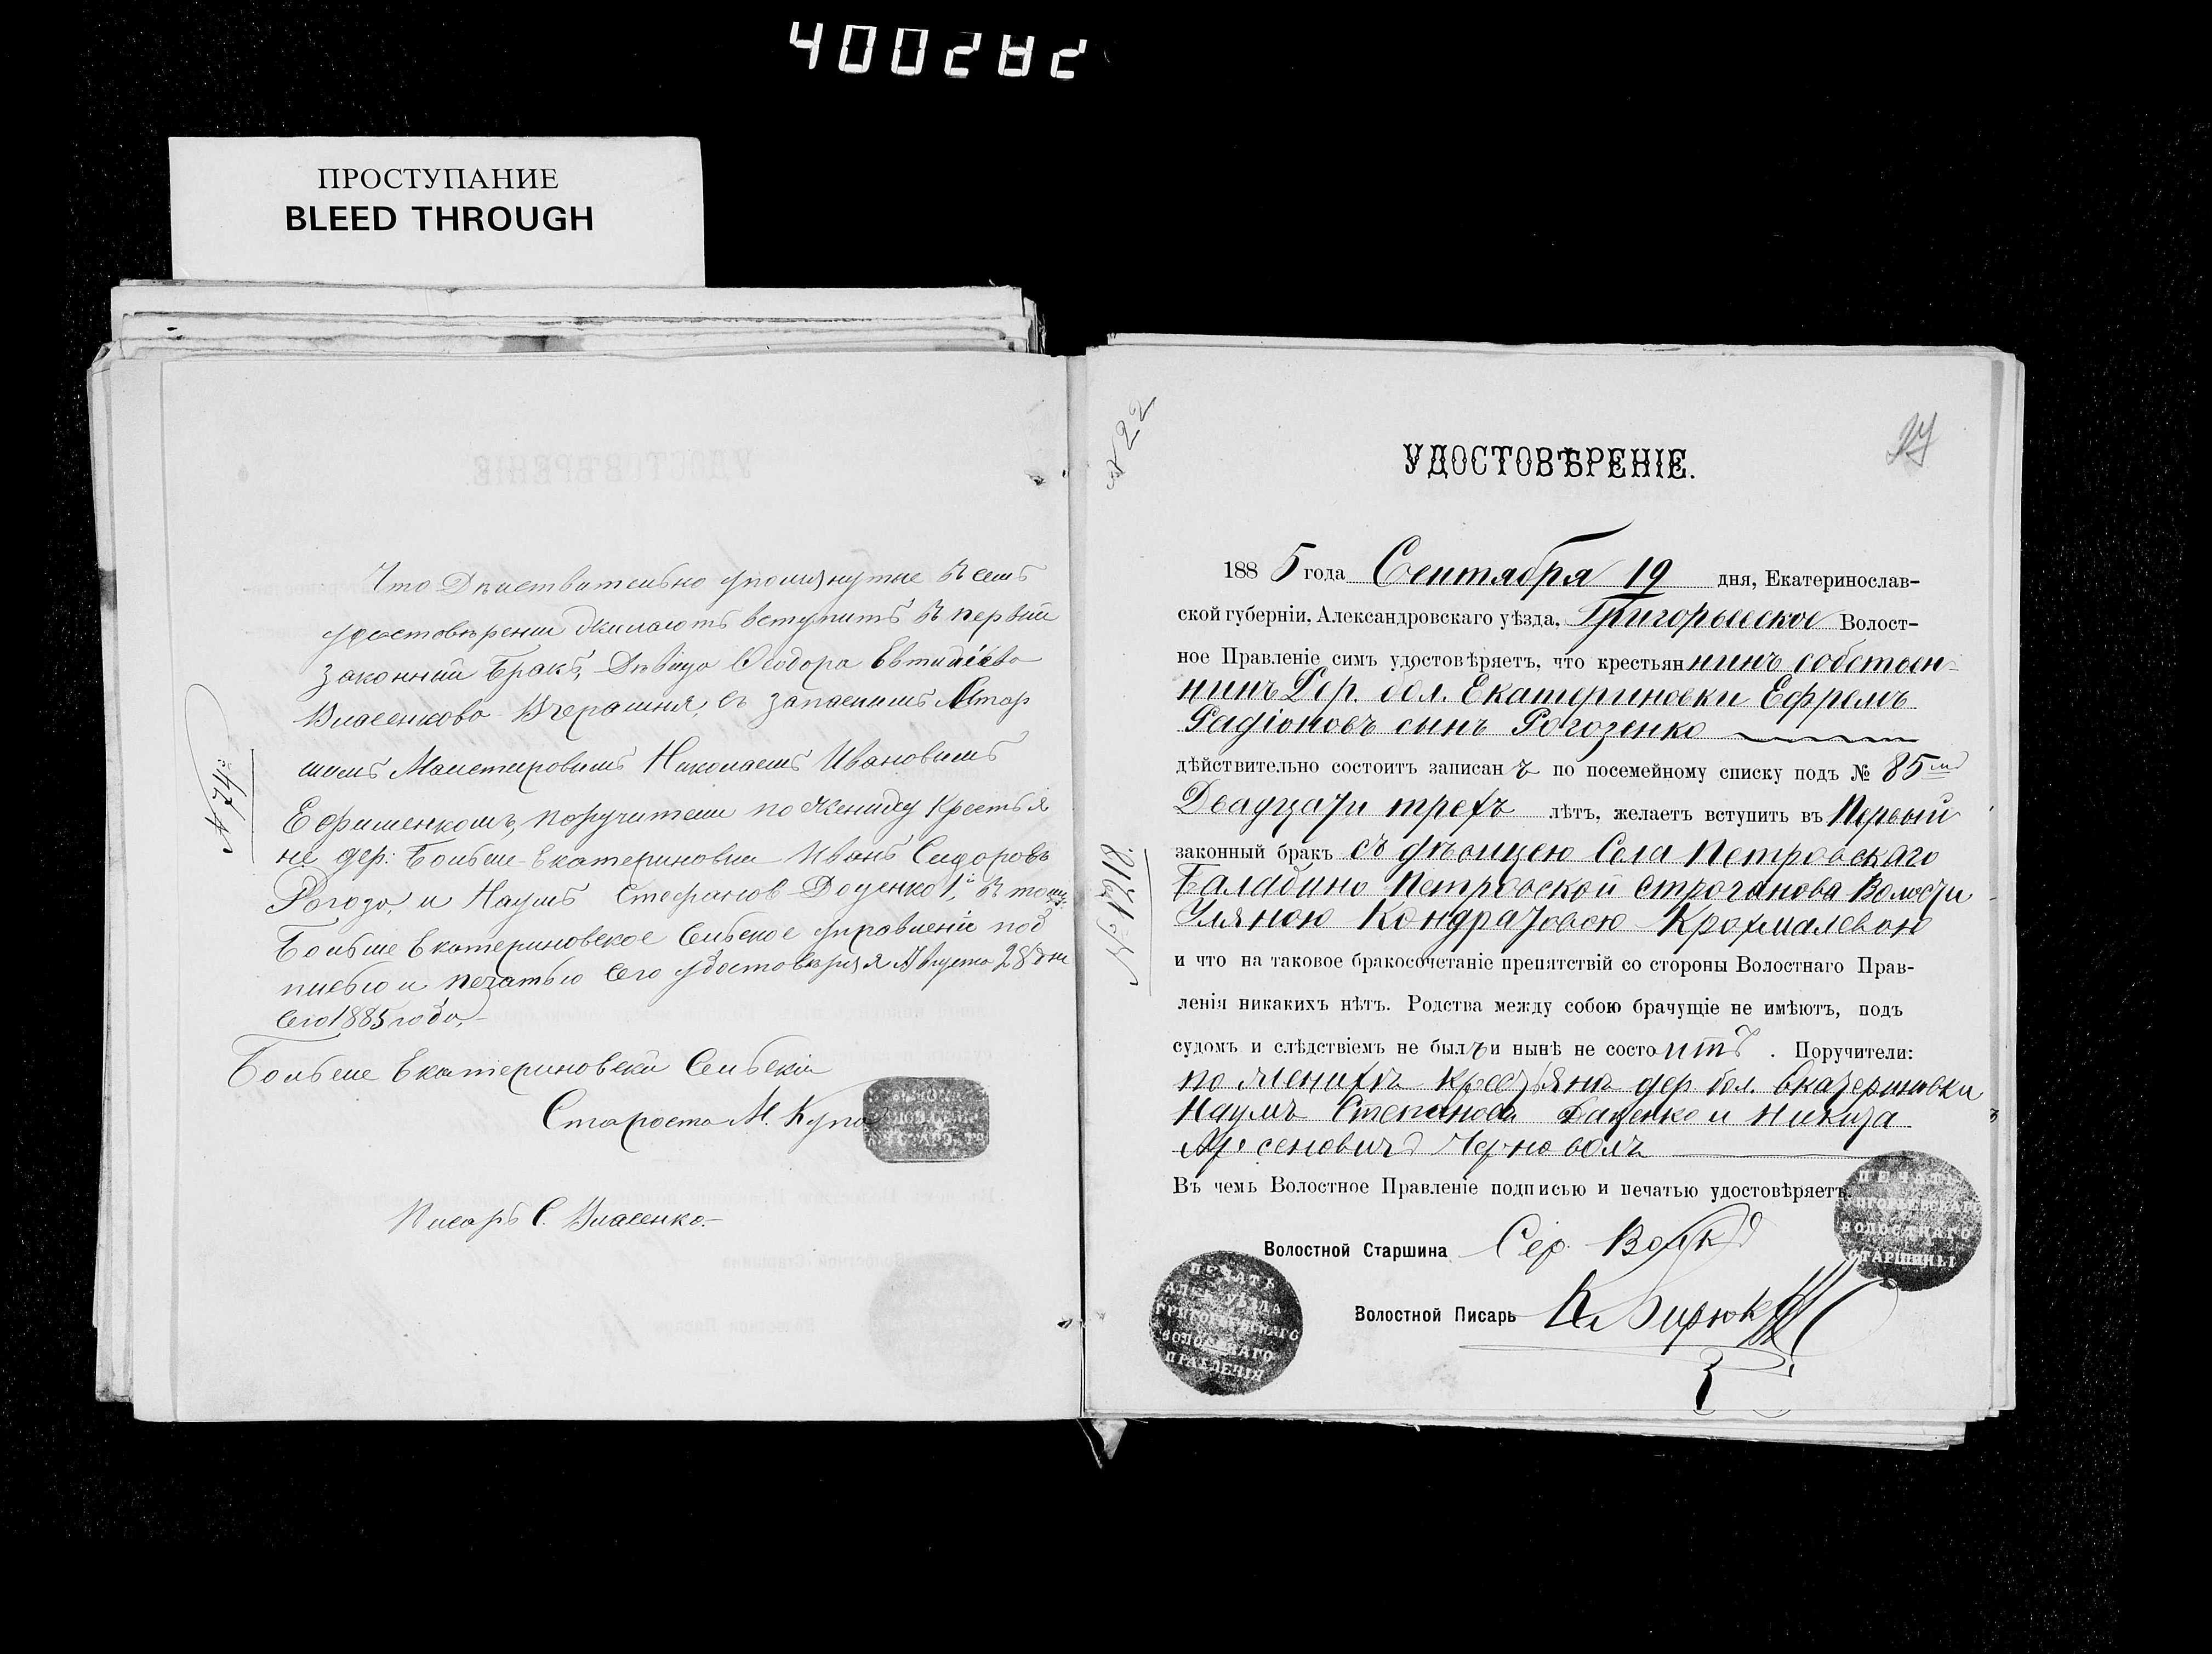 400282
ПРОСТУПАНИЕ
BLEED THROUGH
Что Дѣйствительно упомянутые въ семъ
удостовѣреніи желаютъ вступить въ первый
законный бракъ, Дѣвица Ѳеодора Евтиміева
Власенкова Вчерашня, съ запаснымъ Млар
шимъ Николаемъ Ивановымъ
Ефименкомъ, поручители по жениху Крестья
не дер: Больше-Екатериновки Иванъ Сидоровъ
Рогоза, и Наумъ Стефановъ Доценко 1й, въ томъ
Больше Екатериновское Сельское управленіе под
писью и печатью сего удостовѣряя Августа 28 дня
сего 1885 года,
№ 74й
Больше Екатериновскій Сельскій
Староста М. Купа
Писарь С. Власенко.
№ 22
27
УДОСТОВѢРЕНІЕ.
1885 года Сентября 19 дня, Екатеринослав-
ской губерніи, Александровскаго уѣзда, Григорьевское Волост-
ное Правленіе симъ удостовѣряетъ, что крестьянинъ собствен-
никъ Дер. бол. Екатериновки Ефремъ
Радіоновъ сынъ Рогозенко
дѣйствительно состоитъ записанъ по посемейному списку подъ № 85
Двадцати трехъ лѣтъ, желаетъ вступить въ Первый
законный бракъ съ дѣвицею Села Петровскаго
Балабино Петровской Строганова Волости
Уляною Кондратовою Крохмалевою
и что на таковое бракосочетаніе препятствій со стороны Волостнаго Прав-
ленія никакихъ нѣтъ. Родства между собою брачущіе не имѣютъ, подъ
судомъ и слѣдствіемъ не былъ и нынѣ не состоитъ. Поручители:
по женихѣ крестьяне дер. бол. Екатериновки
Наумъ Степановъ Даценко и Никита
Арсеновичъ Черноволъ
№ 1218.
Въ чемъ Волостное Правленіе подписью и печатью удостовѣряетъ.
Волостной Старшина Сер. Волкъ
Волостной Писарь Бирюк
ПЕЧАТЬ
ГРИГОРЬЕВСКАГО
ВОЛОСТНАГО
СТАРШИНЫ
ПЕЧАТЬ
АЛ–К. УѢЗДА
ГРИГОРЬЕВСКАГО
ВОЛОСТНАГО
ПРАВЛЕНІЯ